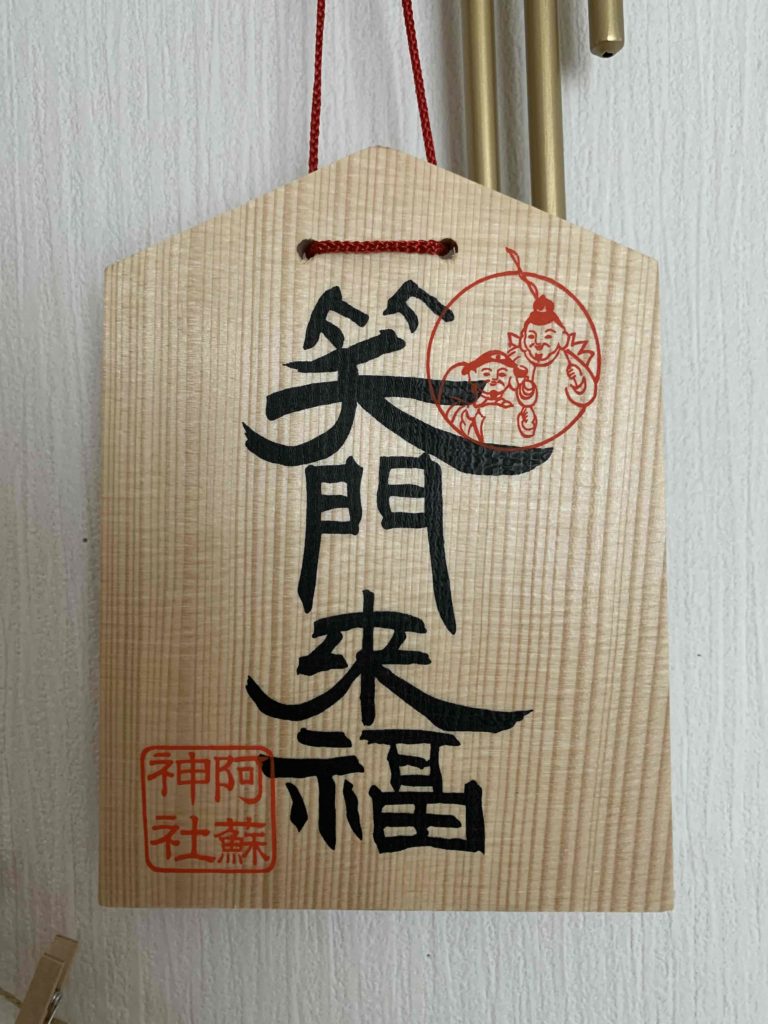 笑門来福
阿蘇
神社